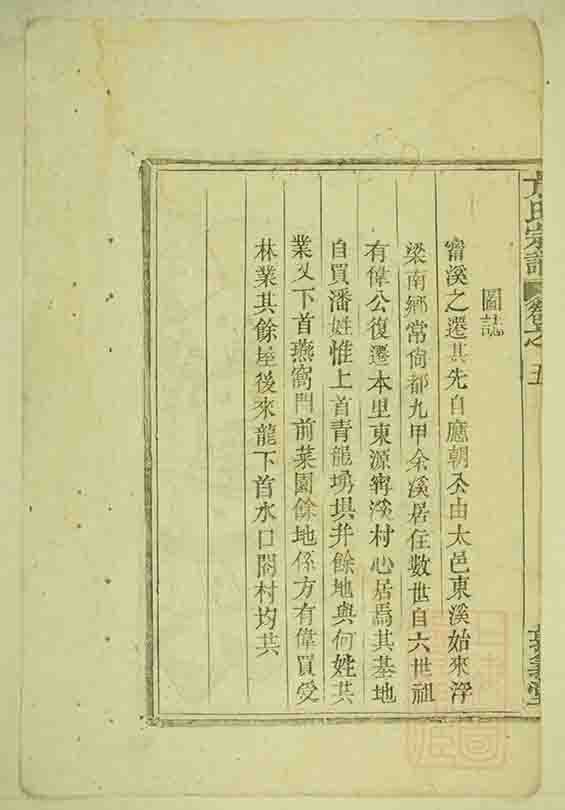 方氏宗譜 卷之五
圖誌
甯溪之遷其先自應朝公由太邑東溪始來浮
梁南鄉常侖都九甲余溪居住數世自六世祖
有偉公復遷本里東源甯溪村心居焉其基地
自買潘姓惟上首青龍塝塤并餘地與何姓共
業又下首燕窩門前菜園餘地係方有偉買受
林業其餘屋後來龍下首水口閤村均共